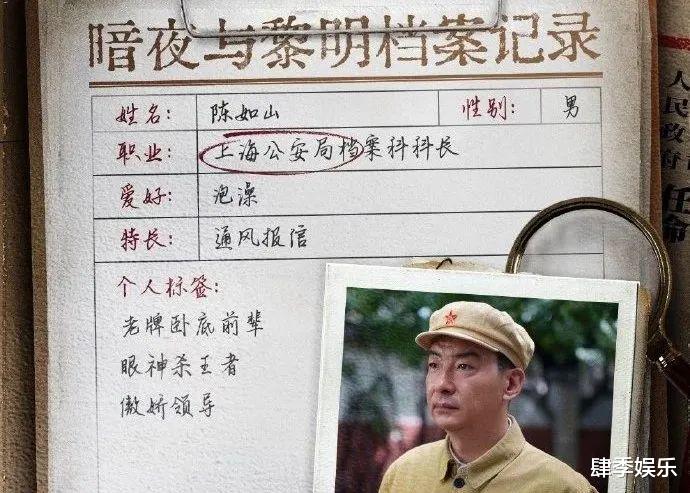 暗夜与黎明档案记录
姓名: 陈如山 性别: 男
职业: 上海公安局档案科科长
爱好: 泡澡
特长: 通风报信
个人标签:
老牌卧底前辈
眼神杀王者
傲娇领导
人民政府
任命
肆季娱乐